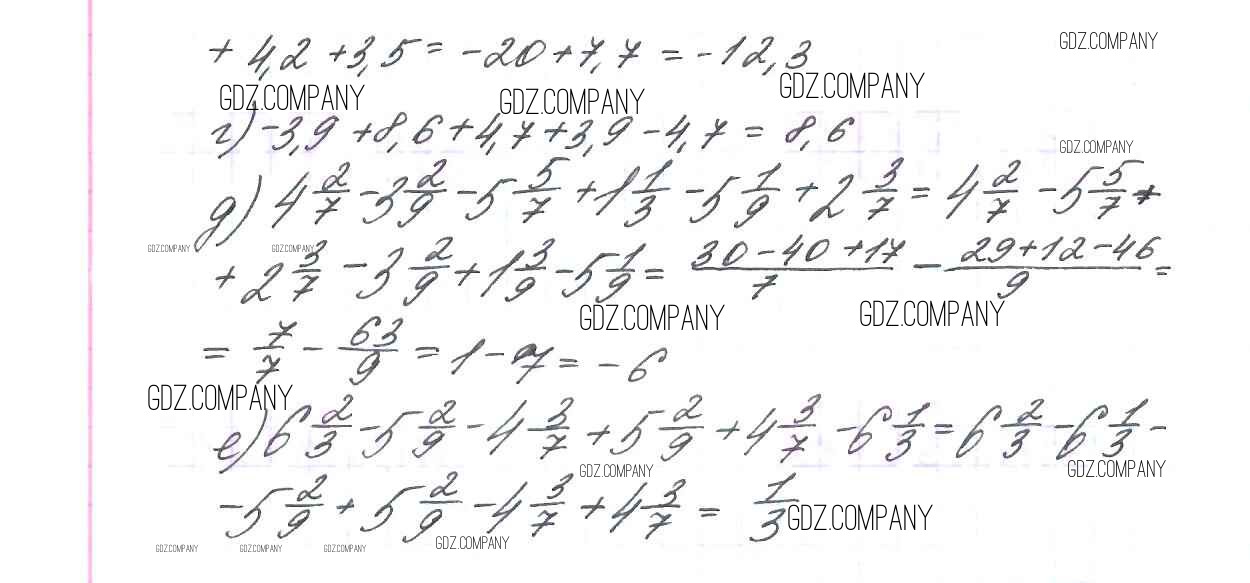 + 4,2 + 3,5 = -20 + 7,7 = -12,3
GDZ.COMPANY
GDZ.COMPANY GDZ.COMPANY GDZ.COMPANY
г) -3,9 + 8,6 + 4,7 + 3,9 - 4,7 = 8,6
GDZ.COMPANY
д) 4 2/7 - 3 2/9 - 5 5/7 + 1 1/3 - 5 1/9 + 2 3/7 = 4 2/7 - 5 5/7 +
GDZ.COMPANY GDZ.COMPANY
+ 2 3/7 - 3 2/9 + 1 3/9 - 5 1/9 = 30 - 40 + 17/7 - 29 + 12 - 46/9 =
GDZ.COMPANY GDZ.COMPANY
= 7/7 - 63/9 = 1 - 7 = -6
GDZ.COMPANY
е) 6 2/3 - 5 2/9 - 4 3/7 + 5 2/9 + 4 3/7 - 6 1/3 = 6 2/3 - 6 1/3 -
GDZ.COMPANY GDZ.COMPANY
- 5 2/9 + 5 2/9 - 4 3/7 + 4 3/7 = 1/3
GDZ.COMPANY
GDZ.COMPANY GDZ.COMPANY GDZ.COMPANY GDZ.COMPANY